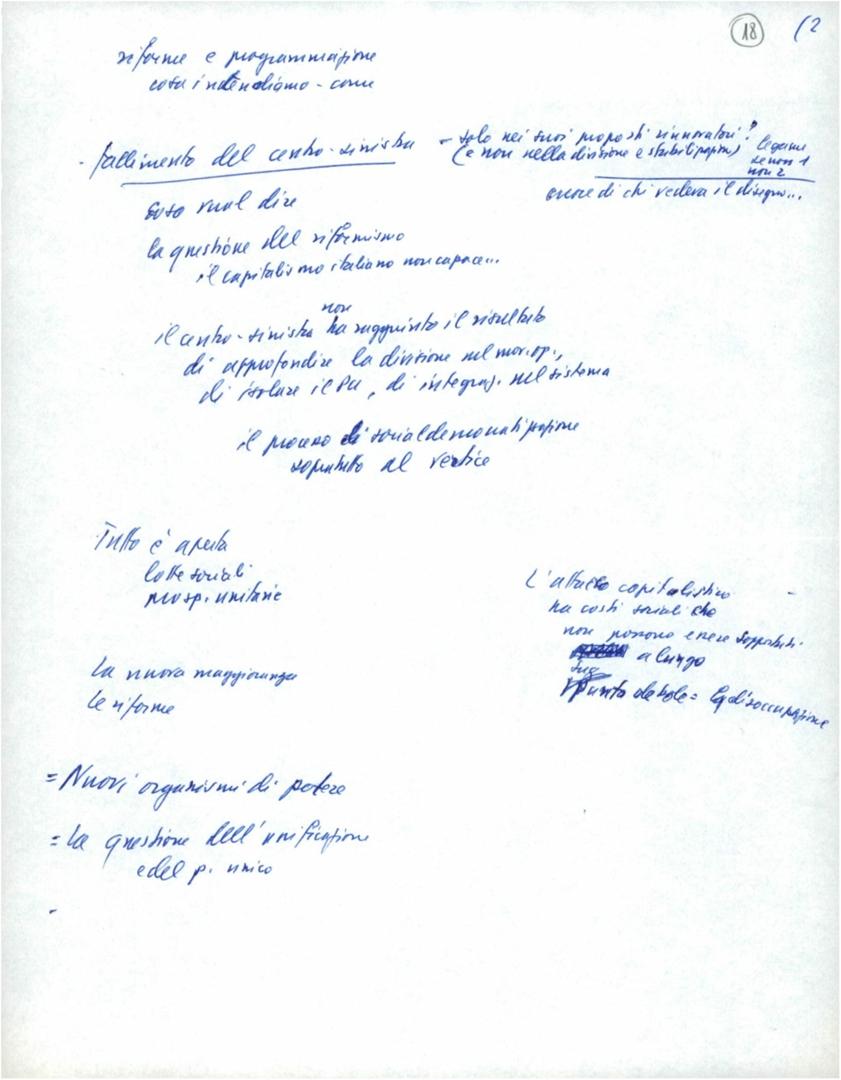 18 (2
riforme e programmazione
cosa intendiamo - come
- fallimento del centro-sinistra - solo nei suoi propositi rinnovatori?
(e non nella divisione e stabilizzazione) legame
se non 1
non 2
errore di chi vedeva il disegno...
cosa vuol dire
la questione del riformismo
il capitalismo italiano non capace...
non
il centro-sinistra ha raggiunto il risultato
di approfondire la divisione nel mov. op.,
di isolare il PCI, di integraz. nel sistema
il processo di socialdemocratizzazione
soprattutto al vertice
Tutto è aperto
lotte sociali
prosp. unitarie
L'attacco capitalistico
ha costi sociali che
non possono essere sopportati
a lungo
Punto debole = la disoccupazione
La nuova maggioranza
Le riforme
= Nuovi organismi di potere
= La questione dell'unificazione
e del p. unico
-